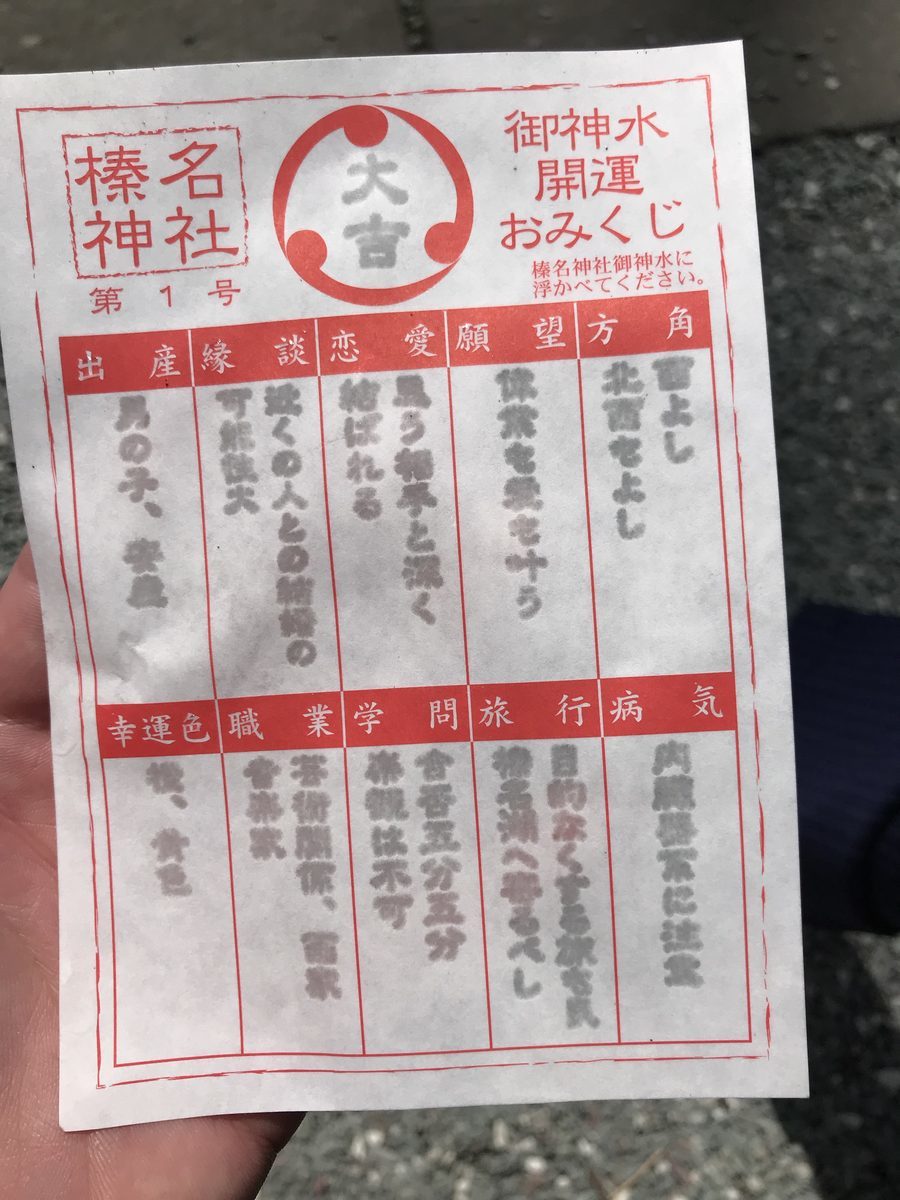 御神水
開運
おみくじ
榛名神社御神水に
浮かべてください。
大吉
榛名
神社
第1号
方角
西よし
北西もよし
願望
保業も業も叶う
恋愛
思う相手と深く
結ばれる
縁談
近くの人との結婚の
可能性大
出産
男の子、安産
病気
内臓器系に注意
旅行
目的なくする旅も良
榛名湖へ寄るべし
学問
合否五分五分
楽観は不可
職業
芸術関係、画家
音楽家
幸運色
桜、黄色